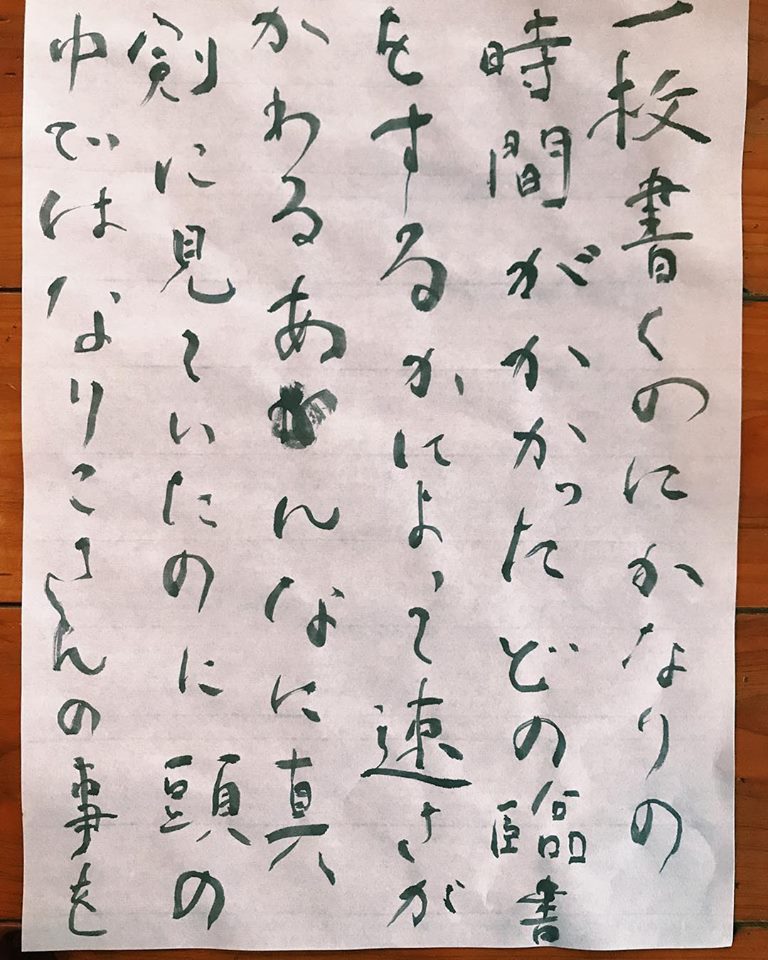 一枚書くのにかなりの
時間がかかったどの臨書
をするかによって速さが
かわるあんなに真
剣に見ていたのに頭の
中ではなりこさんの事を